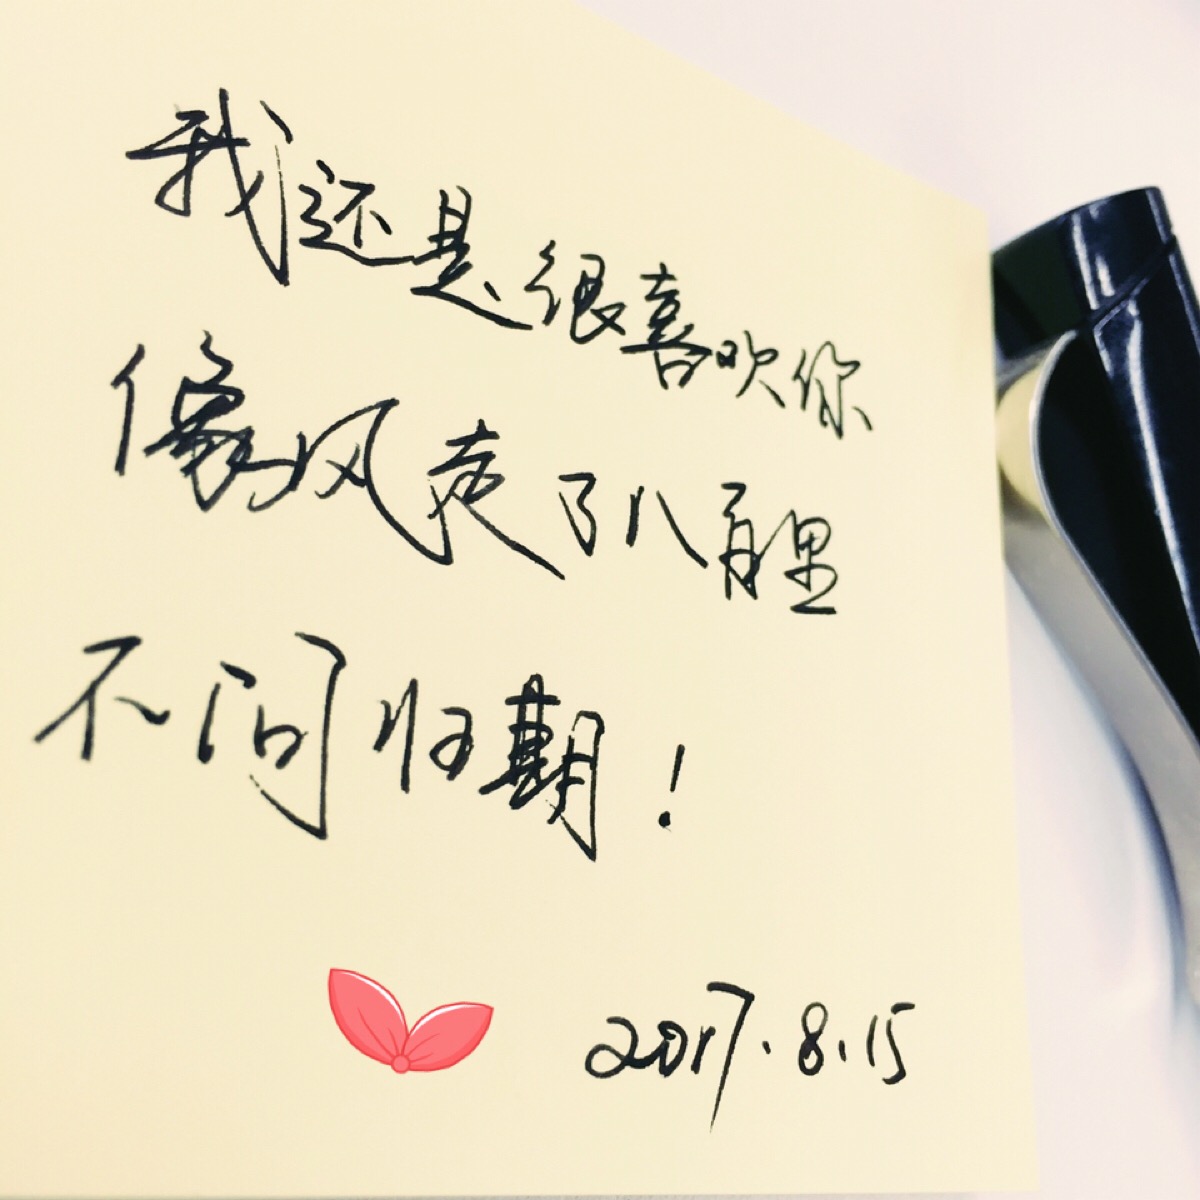 我还是很喜欢你
像风走了八百里
不问归期!
2017.8.15